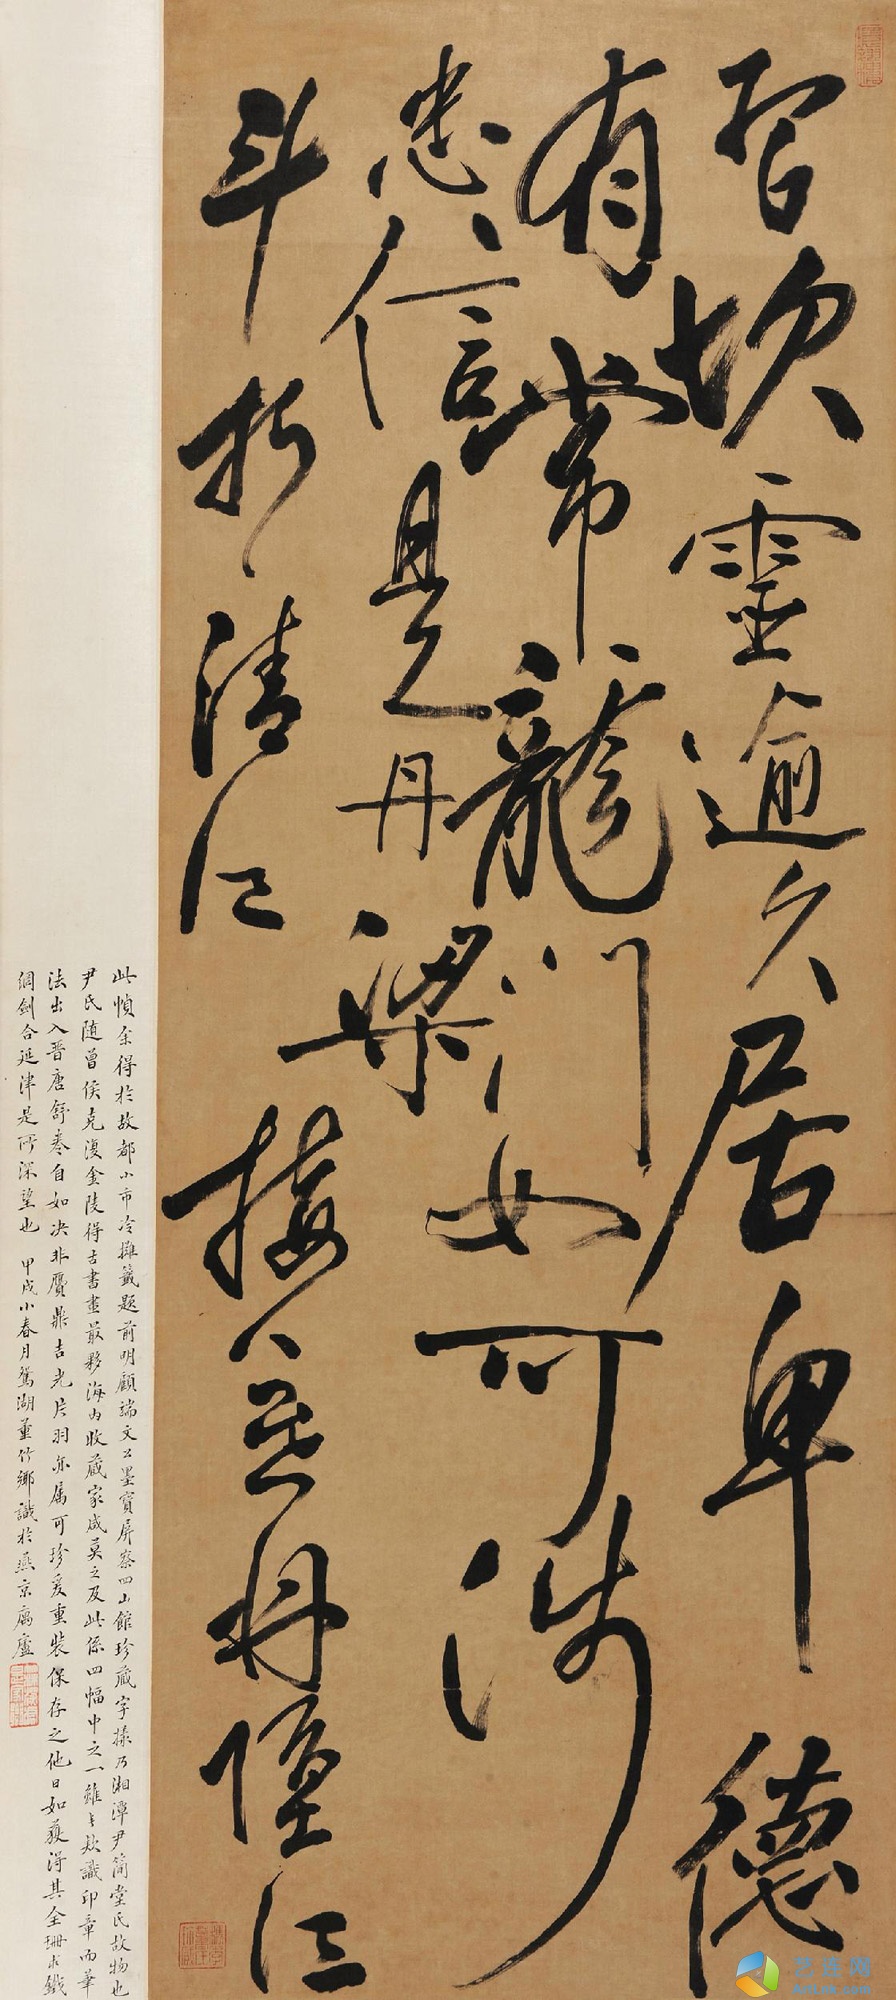 習坎靈逾久居卑德
有常龍門如可涉
忠信是舟梁
斗折清江接舟江
此幀余得於故都小市冷攤籤題前明顧端文公墨寶屏寮四山館珍藏字樣乃湘潭尹簡堂氏故物也
尹氏随曾侯克復金陵得古書畫最夥海內收藏家咸莫之及此係四幅中之一雖無欵識印章而筆
法出入晋唐舒卷自如决非贋鼎吉光片羽亦属可珍爰重裝保存之他日如獲得其全珊木鐵
網劍合延津是所深望也 甲戌小春月鴛湖董竹鄉識於燕京寓廬